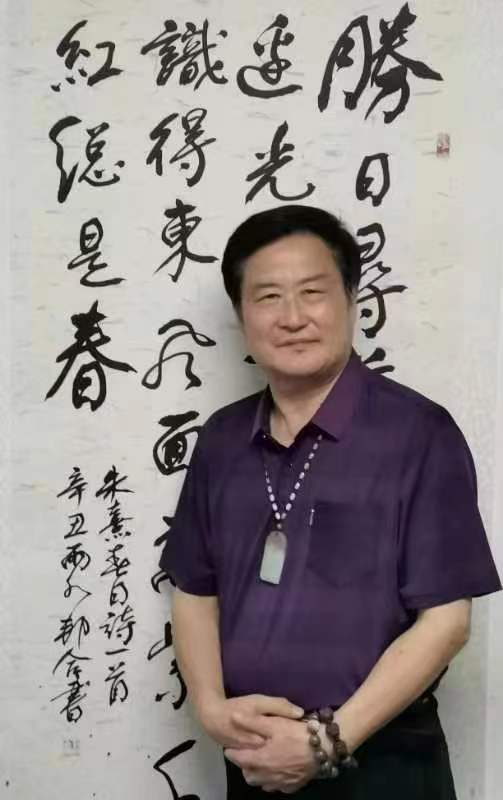 勝日尋
邊光
識得東風面萬紫千
紅總是春
朱熹春日詩一首
辛丑雨 書